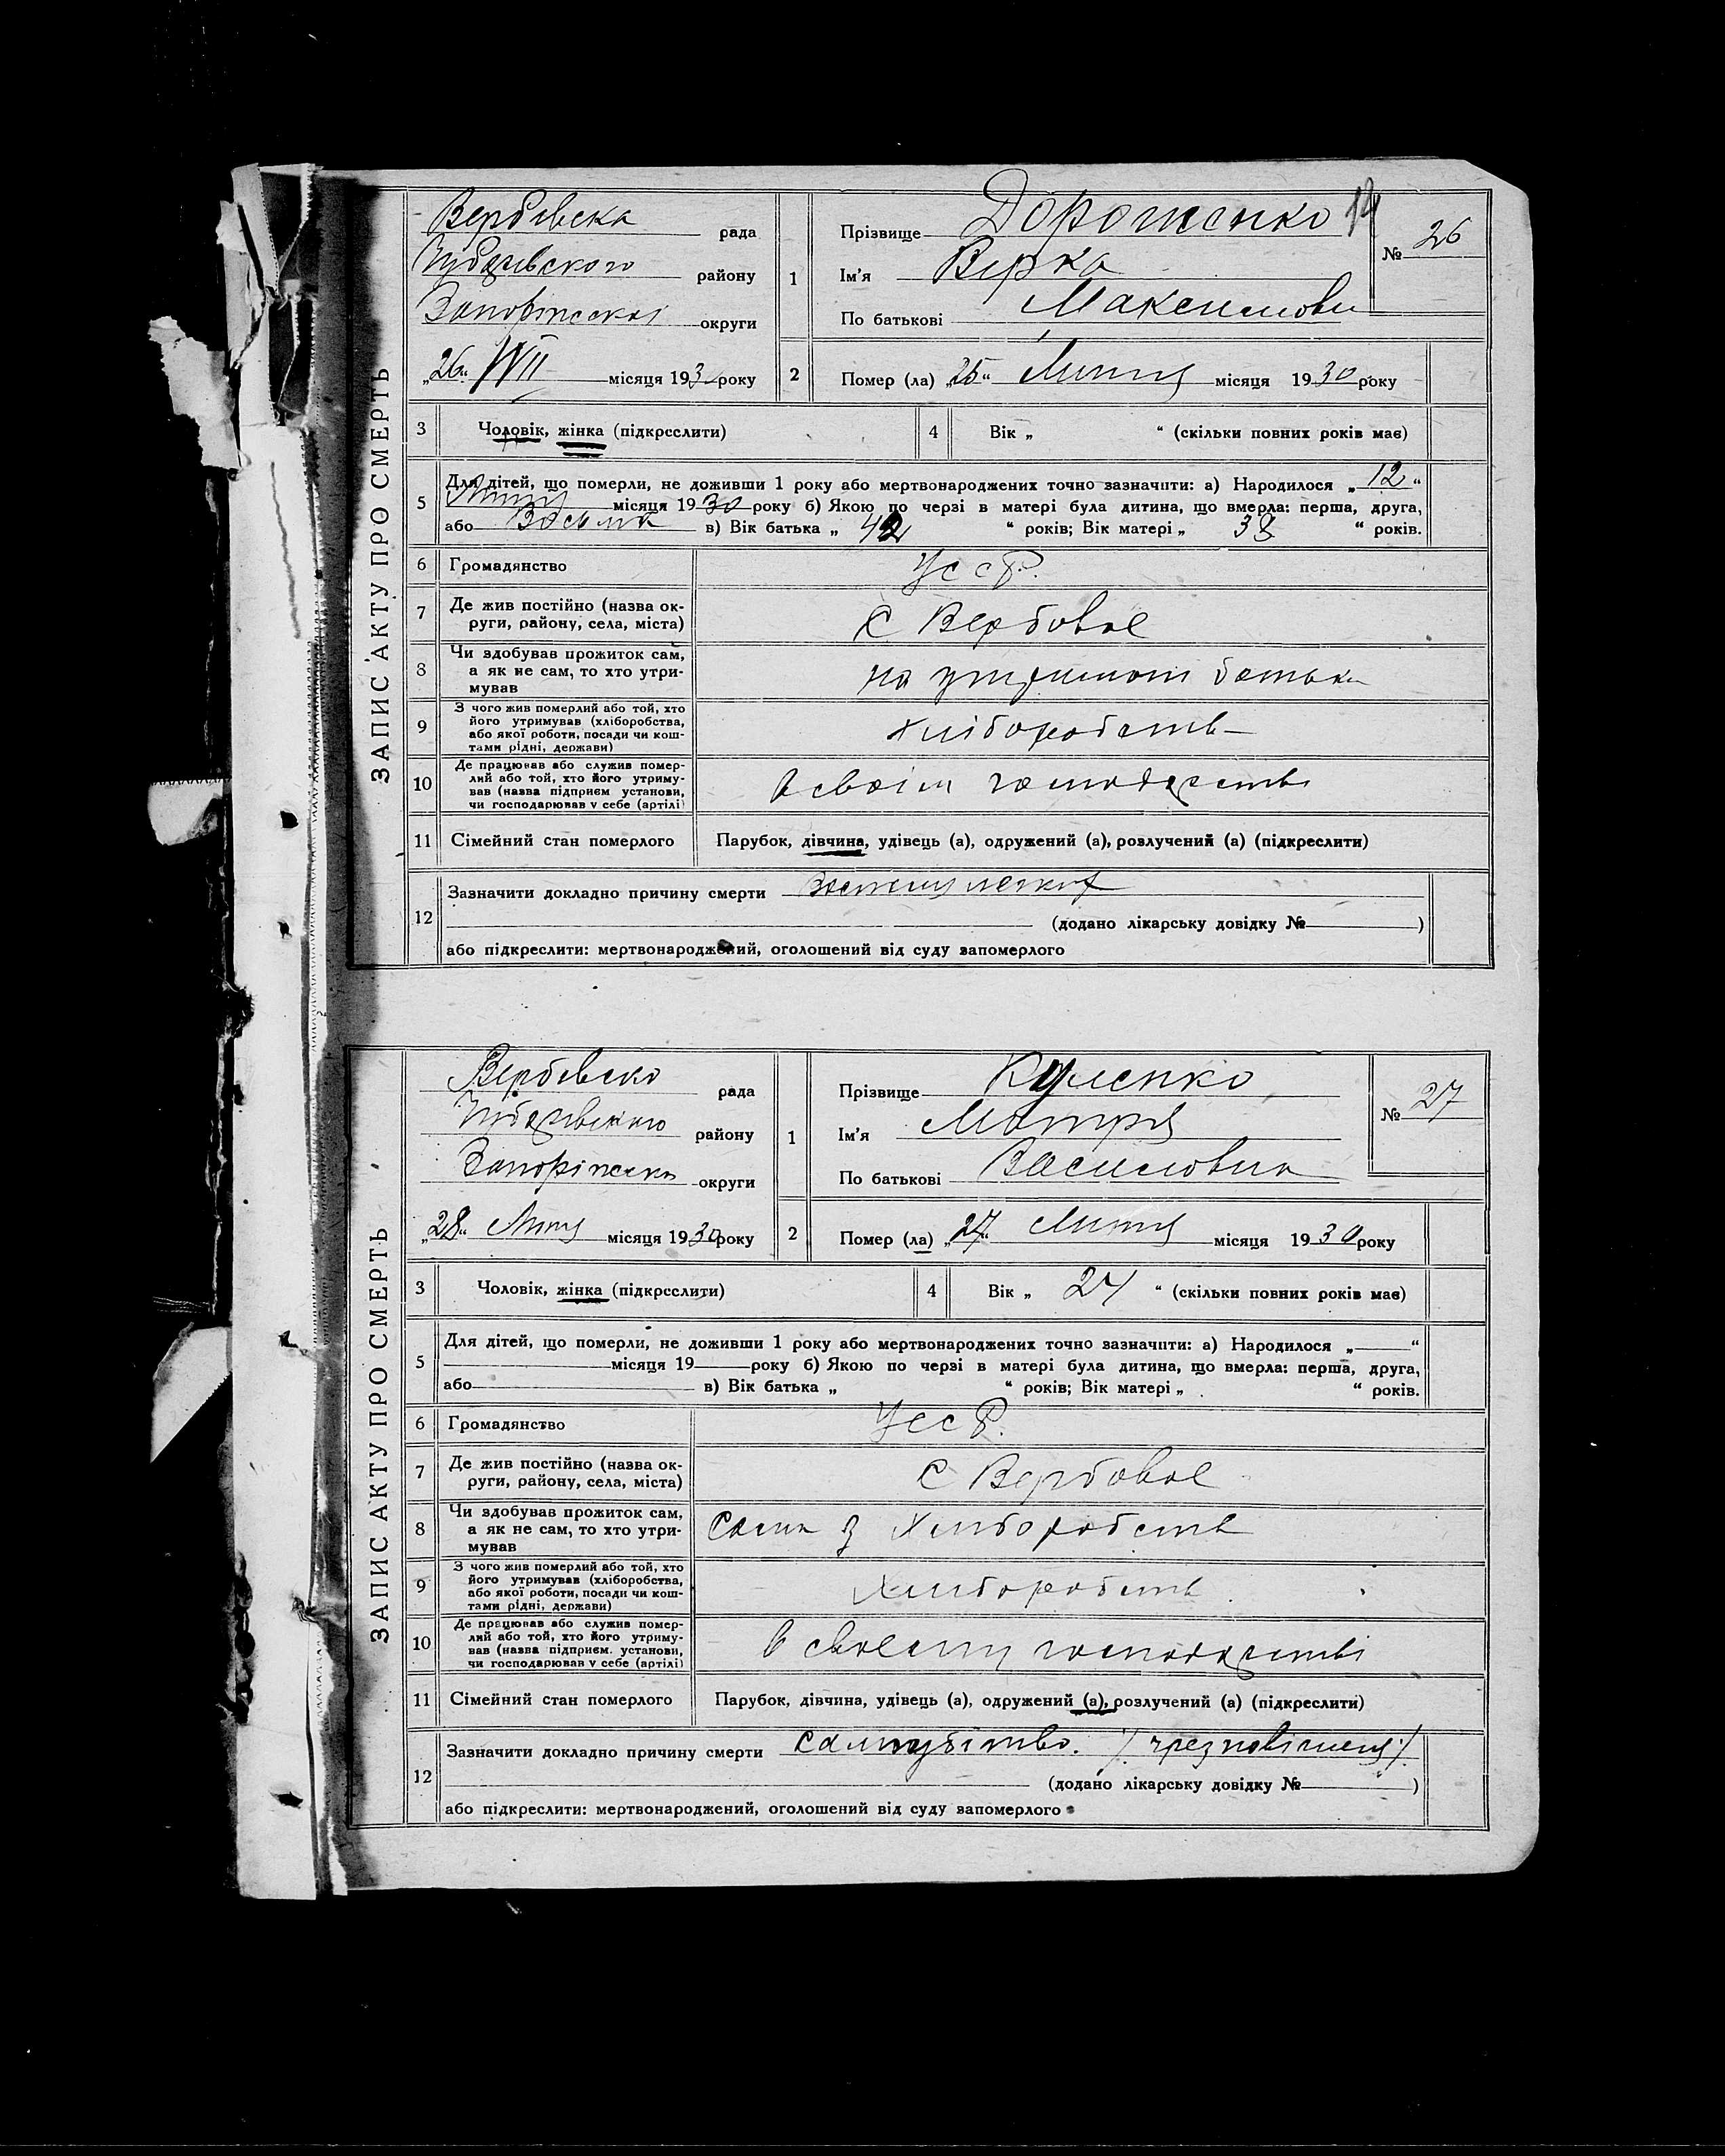 ЗАПИС АКТУ ПРО СМЕРТЬ
Вербівська рада
Чубарівського району
Запоріжської округи
„26“ VII місяця 1930 року
1
Прізвище Дорошенко
14
Ім'я Вірка
По батькові Максимовн
№ 26
2 Помер (ла) „25“ Липня місяця 1930 року
3 Чоловік, жінка (підкреслити)
4 Вік „ “ (скільки повних років має)
5 Для дітей, що померли, не доживши 1 року або мертвонароджених точно зазначити: а) Народилося „12“
Липня місяця 1930 року б) Якою по черзі в матері була дитина, що вмерла: перша, друга,
або Восьма в) Вік батька „ 42 “ років; Вік матері „ 38 “ років.
6 Громадянство УССР.
7 Де жив постійно (назва ок-
руги, району, села, міста)
С Вербовое
8 Чи здобував прожиток сам,
а як не сам, то хто утри-
мував
на утриманні батька
9 З чого жив померлий або той, хто
його утримував (хліборобства,
або якої роботи, посади чи кош-
тами рідні, держави)
Хліборобств
10 Де працював або служив помер-
лий або той, хто його утриму-
вав (назва підприєм установи,
чи господарював у себе (артілі)
в своїм господарстві
11 Сімейний стан померлого Парубок, дівчина, удівець (а), одружений (а), розлучений (а) (підкреслити)
12 Зазначити докладно причину смерти
(додано лікарську довідку № )
або підкреслити: мертвонароджений, оголошений від суду запомерлого
ЗАПИС АКТУ ПРО СМЕРТЬ
Вербівська рада
Чубарівського району
Запоріжська округи
„28“ Липня місяця 1930 року
1
Прізвище Куленко
Ім'я Мотря
По батькові Василовна
№ 27
2 Помер (ла) „27“ Липня місяця 1930 року
3 Чоловік, жінка (підкреслити)
4 Вік „ 24 “ (скільки повних років має)
5 Для дітей, що померли, не доживши 1 року або мертвонароджених точно зазначити: а) Народилося „ “
місяця 19 року б) Якою по черзі в матері була дитина, що вмерла: перша, друга,
або в) Вік батька „ “ років; Вік матері „ “ років.
6 Громадянство УССР.
7 Де жив постійно (назва ок-
руги, району, села, міста)
С Вербовое
8 Чи здобував прожиток сам,
а як не сам, то хто утри-
мував
Сама з Хліборобств
9 З чого жив померлий або той, хто
його утримував (хліборобства,
або якої роботи, посади чи кош-
тами рідні, держави)
Хліборобств
10 Де працював або служив помер-
лий або той, хто його утриму-
вав (назва підприєм. установи,
чи господарював у себе (артілі)
в своему господарстві
11 Сімейний стан померлого Парубок, дівчина, удівець (а), одружений (а), розлучений (а) (підкреслити)
12 Зазначити докладно причину смерти самоубіство. /чрез повішеня/.
(додано лікарську довідку № )
або підкреслити: мертвонароджений, оголошений від суду запомерлого